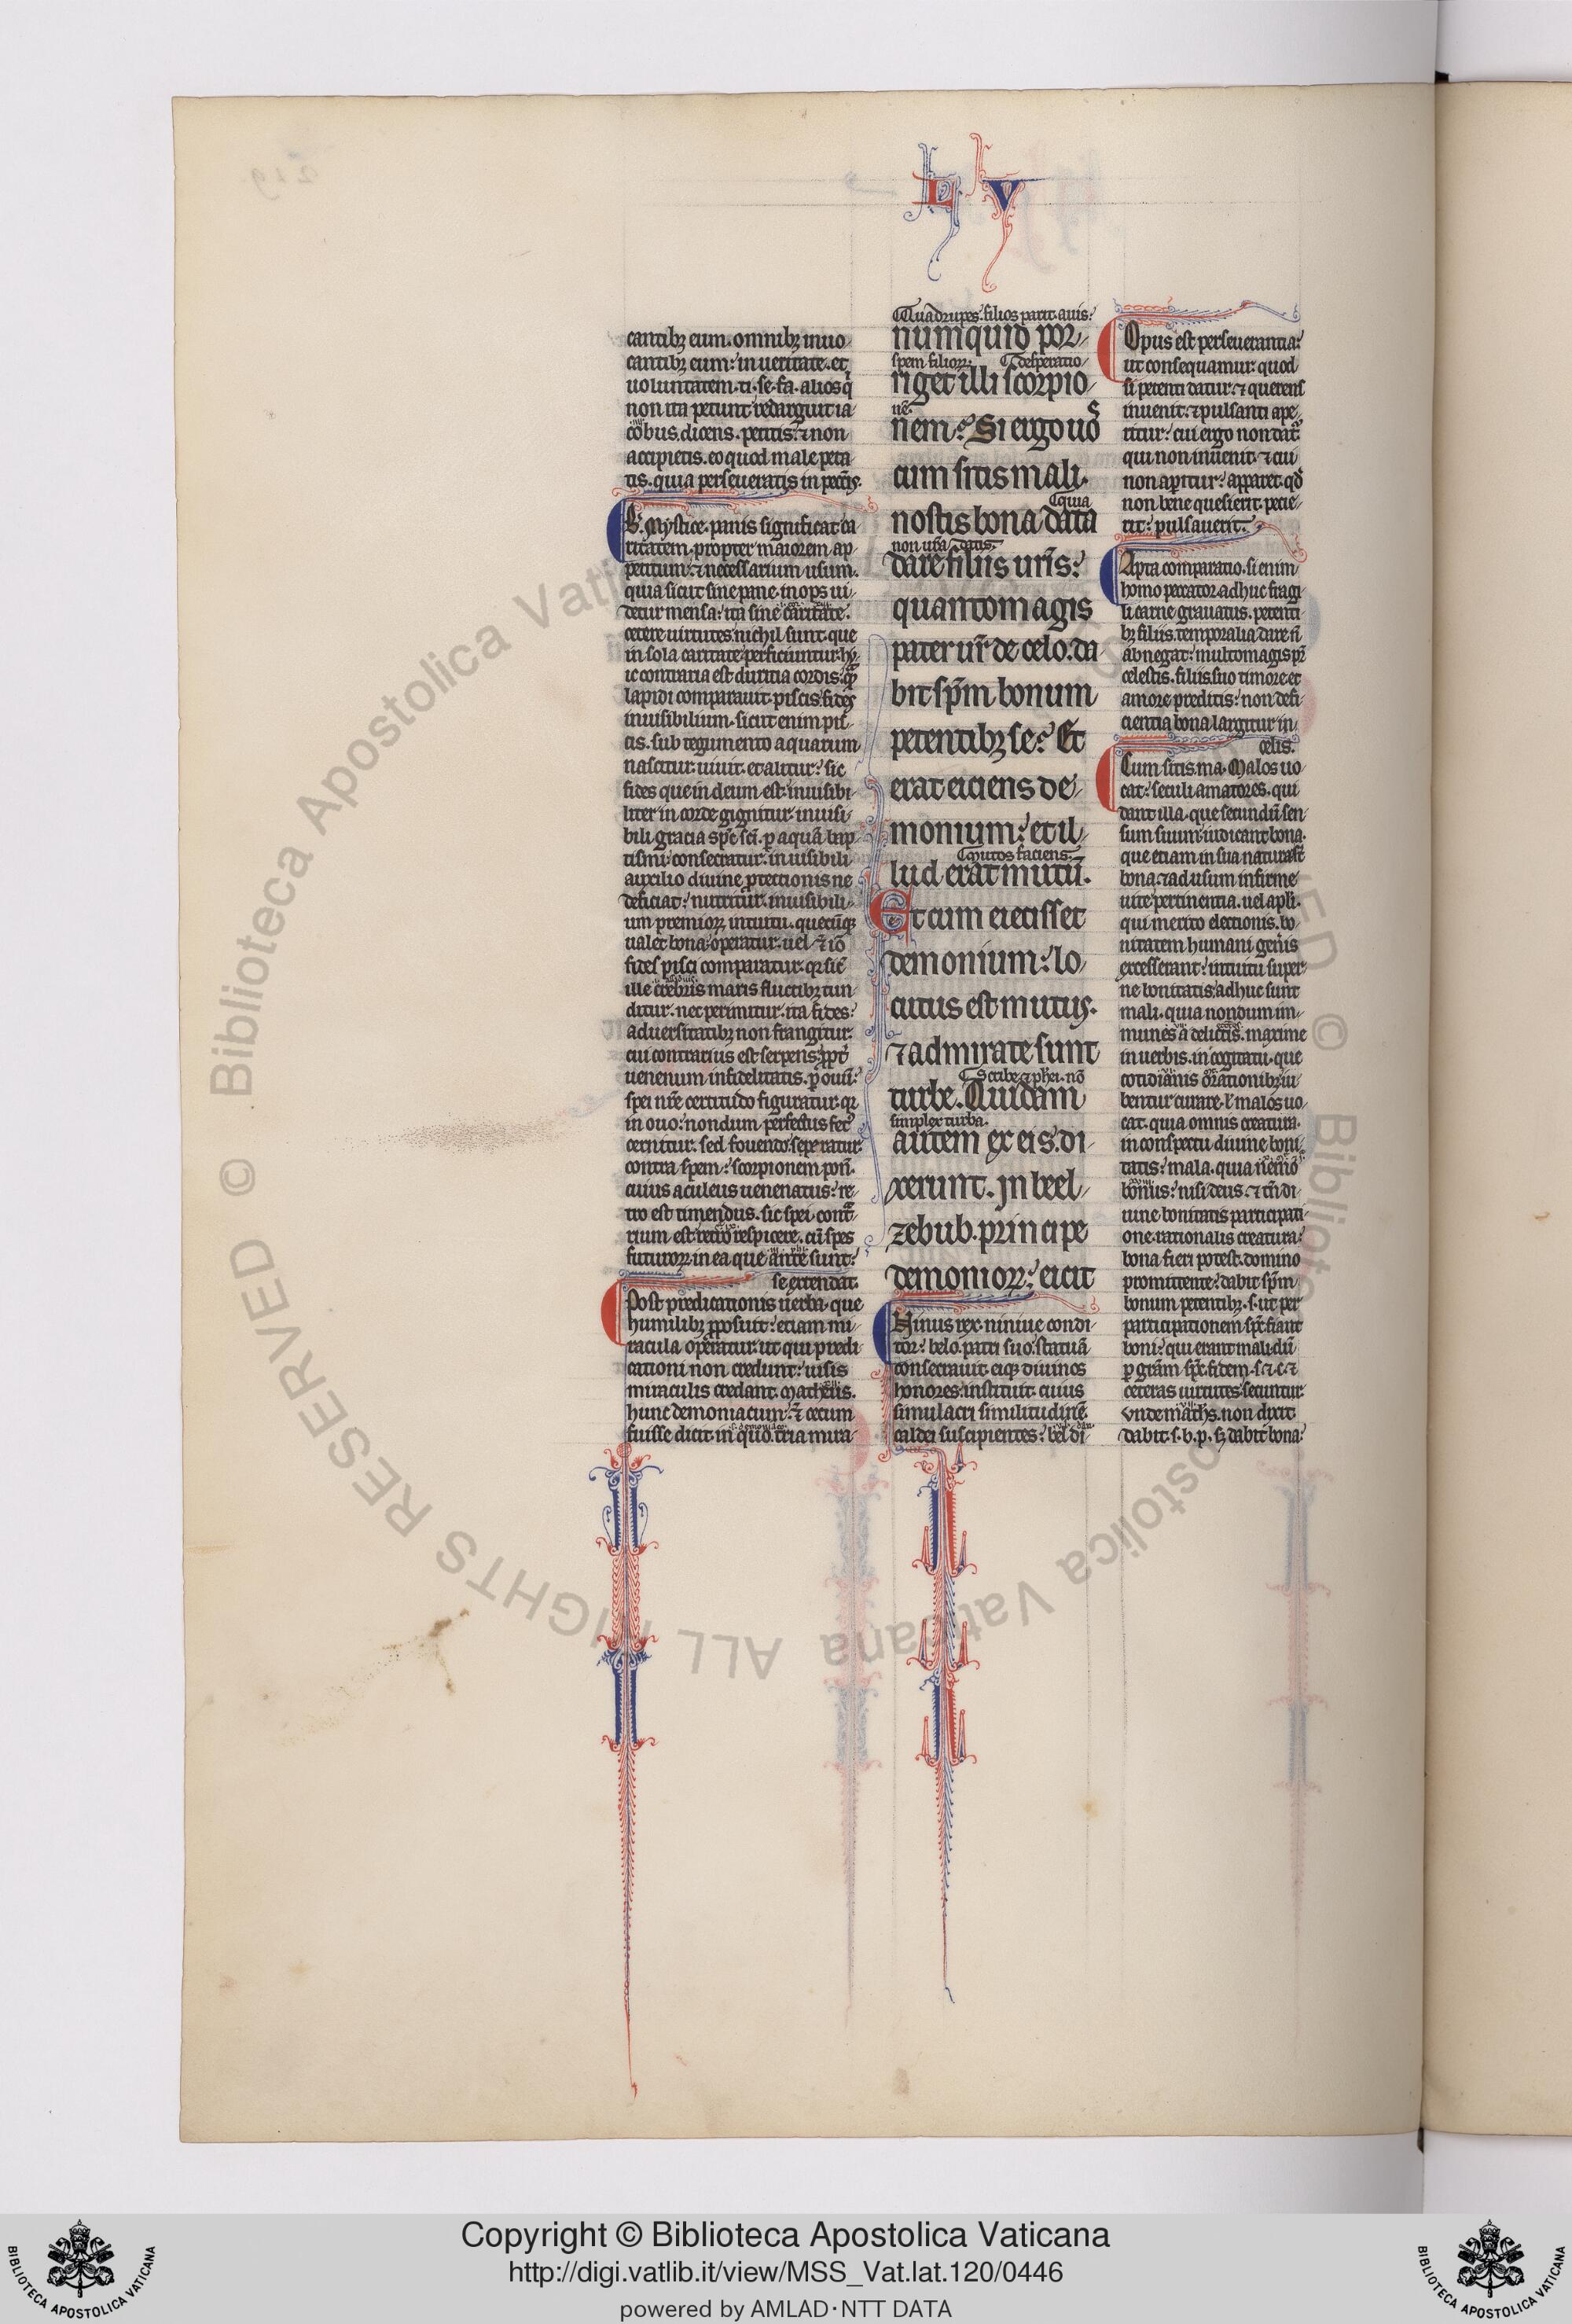 L V
cantibꝫ eum. omnibꝫ inuo
cantibꝫ eum: in ueritate. et
uoluntatem. ti. se. fa. alios q̇
non ita petunt redarguit ia
cobus. dicens. petitis: ⁊ non
accipietis. eo quod male peta
tis. quia perseueratis in pecc̄is.
B. Mystice. panis significat ca
ritatem. propter maiorem ap
petitum: ⁊ necessarium usum.
quia sicut sine pane. inops ui
detur mensa: ita sine caritate.
cetere uirtutes nichil sunt. que
in sola caritate perficiuntur. hu
ic contraria est duritia cordis. q̄
lapidi comparauit. piscis: fides
inuisibilium. sicut enim pis
cis. sub tegumento aquarum
nascitur. uiuit. et alitur: sic
fides que in deum est: inuisibi
liter in corde gignitur. inuisi
bili gracia sp̄c sc̄i. p aquā bap
tismi consecratur. inuisibili
auxilio diuine ꝓtectionis ne
deficiat: nutritur. inuisibili
um premioꝝ intuitu. quecūqꝫ
ualet bona operatur. uel. ⁊ iō
fides pisci comparatur. qꝛ sic̄
ille crebris maris fluctibꝫ tun
ditur. nec perimitur. ita fides:
aduersitatibꝫ non frangitur.
cui contrarius est serpens: ꝓpt̄
uenenum infidelitatis. p ouū:
spei nr̄e certitudo figuratur. qꝛ
in ouo: nondum perfectus fet᷒
cernitur. sed fouendo: speratur.
contra spem: scorpionem pon̄.
cuius aculeus uenenatus: re
tro est timendus. sic spei cont̄
rium est: retro respicere. cū spes
futuroꝝ in ea que ante sunt:
se extendat.
Post predicationis uerba. que
humilibꝫ ꝓposuit: etiam mi
racula operatur. ut qui predi
cationi non credunt: uisis
miraculis credant. Matheus.
hunc demoniacum: ⁊ cecum
fuisse dicit. in quo. tria mira
Quadrupes. filios parit. auis:
numquid por
spem filioꝝ. desperatio
riget illi scorpio
nē.
nem: Si ergo uo
s
cum sitis mali.
quia
nostis bona data
non ur̄a datis.
dare filiis ur̄is:
quantomagis
pater ur̄ de celo. da
bit sp̄m bonum
petentibꝫ se: Et
erat eiciens de
monium: et il
mutos faciens.
lud erat mutū.
Et cum eiecisset
demonium: lo
cutus est mutus.
⁊ admirate sunt
scribe ⁊ phei. nō
turbe. Quidam
simplex turba.
autem ex eis. di
xerunt. In beel
zebub. principe
demonioꝝ: eicit
Ninus rex. niniue condi
tor: belo. patri suo: statuā
consecrauit. eiqꝫ diuinos
honores: instituit. cuius
simulacri similitudinē
caldei suscipientes: bel di
Opus est perseuerantia:
ut consequamur. quod
si petenti datur: ⁊ querens
inuenit: ⁊ pulsanti ape
ritur: cui ergo non dat᷒.
qui non inuenit. ⁊ cui
non apitur: apparet. qd̄
non bene quesierit. pecie
rit: pulsauerit.
Apta comparatio. si enim
homo peccator. adhuc fragi
li carne grauatus. petenti
bꝫ filiis. temporalia dare n̄
abnegat: multomagis pr̄
celestis. filiis suo timore et
amore preditis: non defi
cientia bona largitur in
celis.
Cum sitis. ma. Malos uo
cat: seculi amatores. qui
dant illa. que secundū sen
sum suum iudicant bona.
que etiam in sua natura st̄
bona. ⁊ ad usum infirme
uite pertinentia. uel apli.
qui merito electionis. bo
nitatem humani gen̄is
excesserant: intuitu super
ne bonitatis. adhuc sunt
mali. quia nondum im
munes a delictis. maxime
in uerbis. in cogitatu. que
cotidianis orationibꝫ iu
bentur curare. ł malos uo
cat. quia omnis creatura.
in conspectu diuine boni
tatis: mala. quia nemo
bonus: nisi deus. ⁊ tn̄ di
uine bonitatis participati
one. rationalis creatura:
bona fieri potest. domino
promittente: dabit sp̄m
bonum petentibꝫ. s. ut per
participationem sp̄c fiant
boni: qui erant mali. dū
p gr̄am sp̄c. fidem. s. ⁊ c. ⁊
ceteras uirtutes: secuntur.
vnde math̄s. non dixit
dabit. s. b. p. sꝫ dabit bona:
Copyright © Biblioteca Apostolica Vaticana
http://digi.vatlib.it/view/MSS_Vat.lat.120/0446
powered by AMLAD·NTT DATA
BIBLIOTECA APOSTOLICA VATICANA
BIBLIOTECA APOSTOLICA VATICANA
© Biblioteca Apostolica Vaticana ALL RIGHTS RESERVED